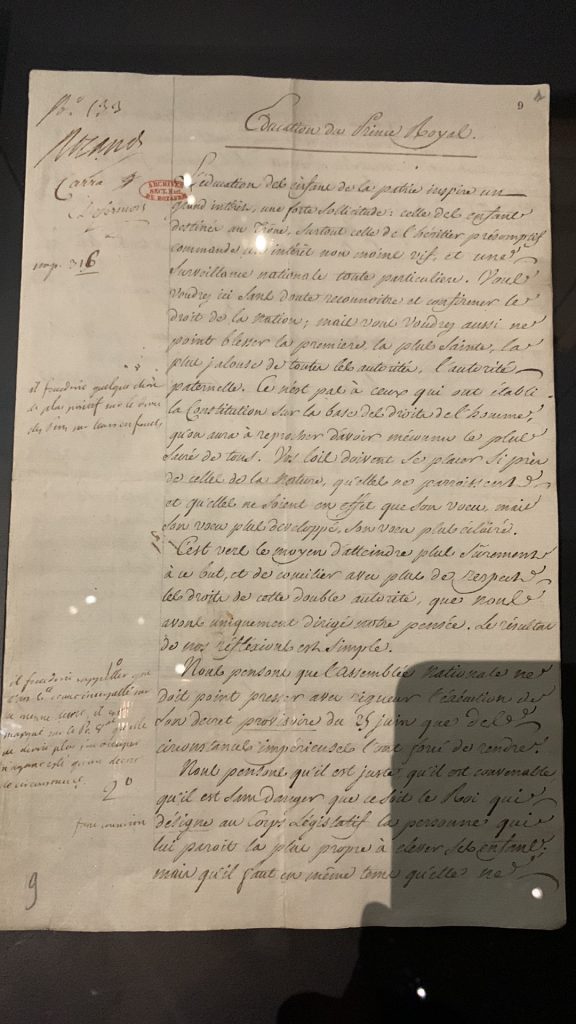 9
Education du Prince Royal.
Po. 133
Roland
Carra
Defermon
imp. 316
ARCHIVES
SECT. HIST.
DU ROYAUME
L'éducation des enfans de la patrie inspire un
grand intérêt, une forte sollicitude: celle des enfans
destinés au Trône, surtout celle de l'héritier présomptif
commande un intérêt non moins vif, et une
surveillance nationale toute particulière. Vous
voudrez ici sans doute reconnoitre et confirmer le
droit de la nation; mais vous voudrez aussi ne
point blesser la première, la plus Sainte, la
plus jalouse de toutes les autorités, l'autorité
paternelle. Ce n'est pas à ceux qui ont établi
la Constitution sur la base des droits de l'homme,
qu'on aura à reprocher d'avoir méconnu le plus
sacré de tous. Vos loix doivent se placer si près
de celles de la Nature, qu'elles ne paroissent
et qu'elles ne soient en effet que son voeu, mais
son voeu plus développé, son voeu plus éclairé.
C'est vers le moyen d'atteindre plus sûrement
à ce but, et de concilier avec plus de respect
les droits de cette double autorité, que nous
avons uniquement dirigé notre pensée. Le résultat
de nos réflexions est simple.
Nous pensons que l'Assemblée Nationale ne
doit point presser avec rigueur l'exécution de
son décret provisoire du 25 juin que des
circonstances impérieuses l'ont forcé de rendre.
Nous pensons qu'il est juste, qu'il est convenable
qu'il est sans danger que ce soit le Roi qui
désigne au Corps Législatif la personne qui
lui paroit la plus propre à élever ses enfans;
mais qu'il faut en même tems qu'elle ne
il faudroit quelque chose
de plus positif sur le
des sur leurs enfants
1o
il faudroit rappeller que
la même
2o
9